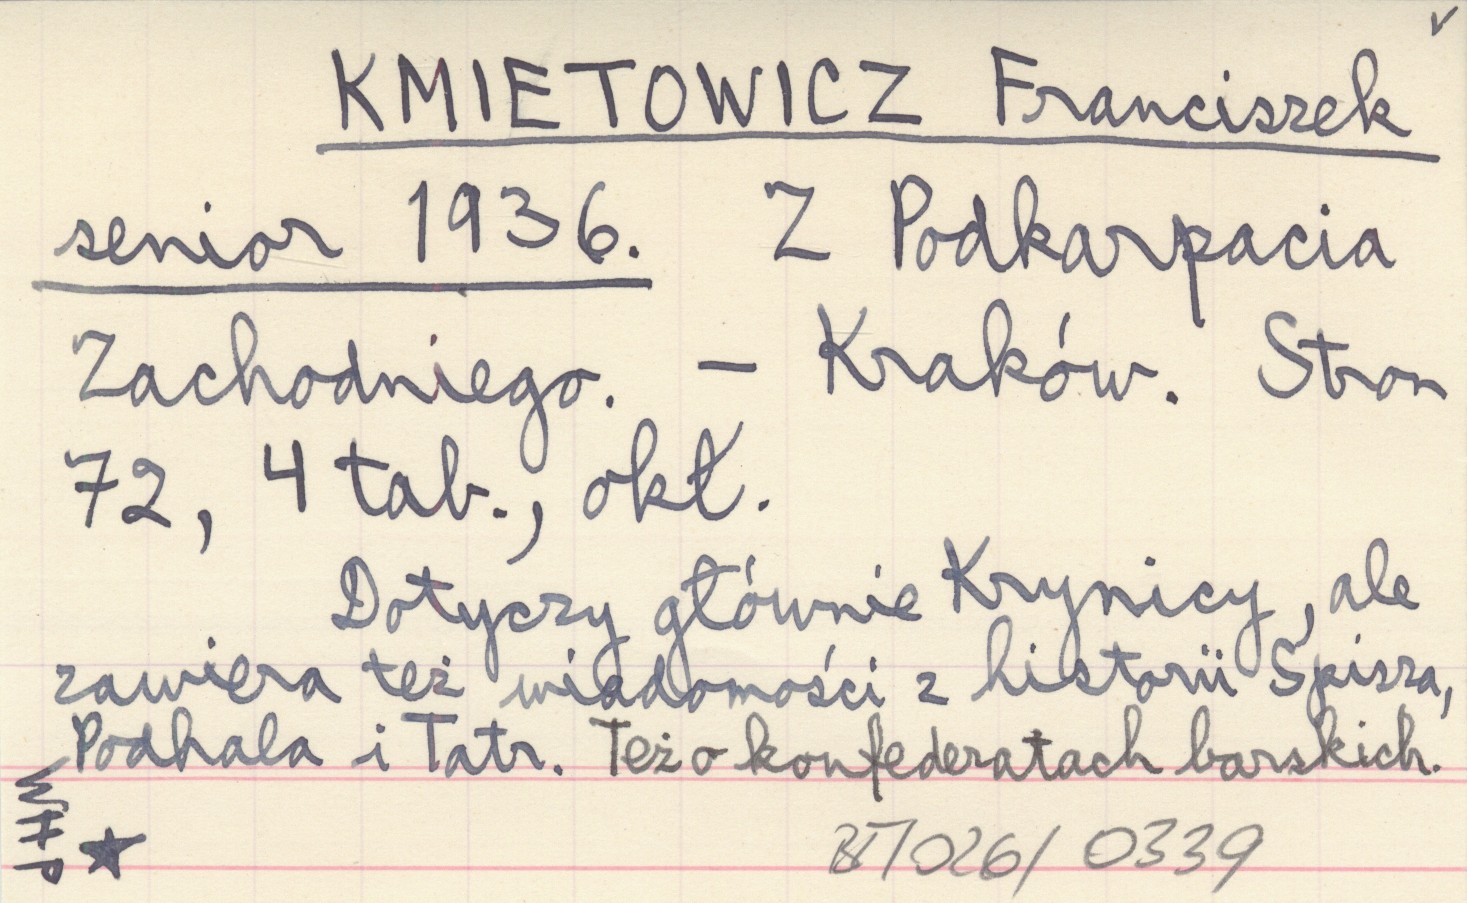 KMIETOWICZ Franciszek
senior 1936. Z Podkarpacia
Zachodniego. – Kraków. Stron
72, 4 tab., okł.
Dotyczy głównie Krynicy, ale
zawiera też wiadomości z historii Spisza,
Podhala i Tatr. Też o konfederatach barskich.
WHP
026/0339